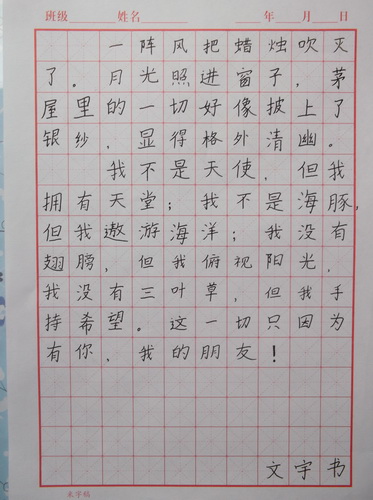 班级 姓名 年 月 日
一阵风把蜡烛吹灭
了。月光照进窗子，茅
屋里的一切好像披上了
银纱，显得格外清幽。
我不是天使，但我
拥有天堂；我不是海豚，
但我遨游海洋；我没有
翅膀，但我俯视阳光，
我没有三叶草，但我手
持希望。这一切只因为
有你，我的朋友！
文字书
米字稿